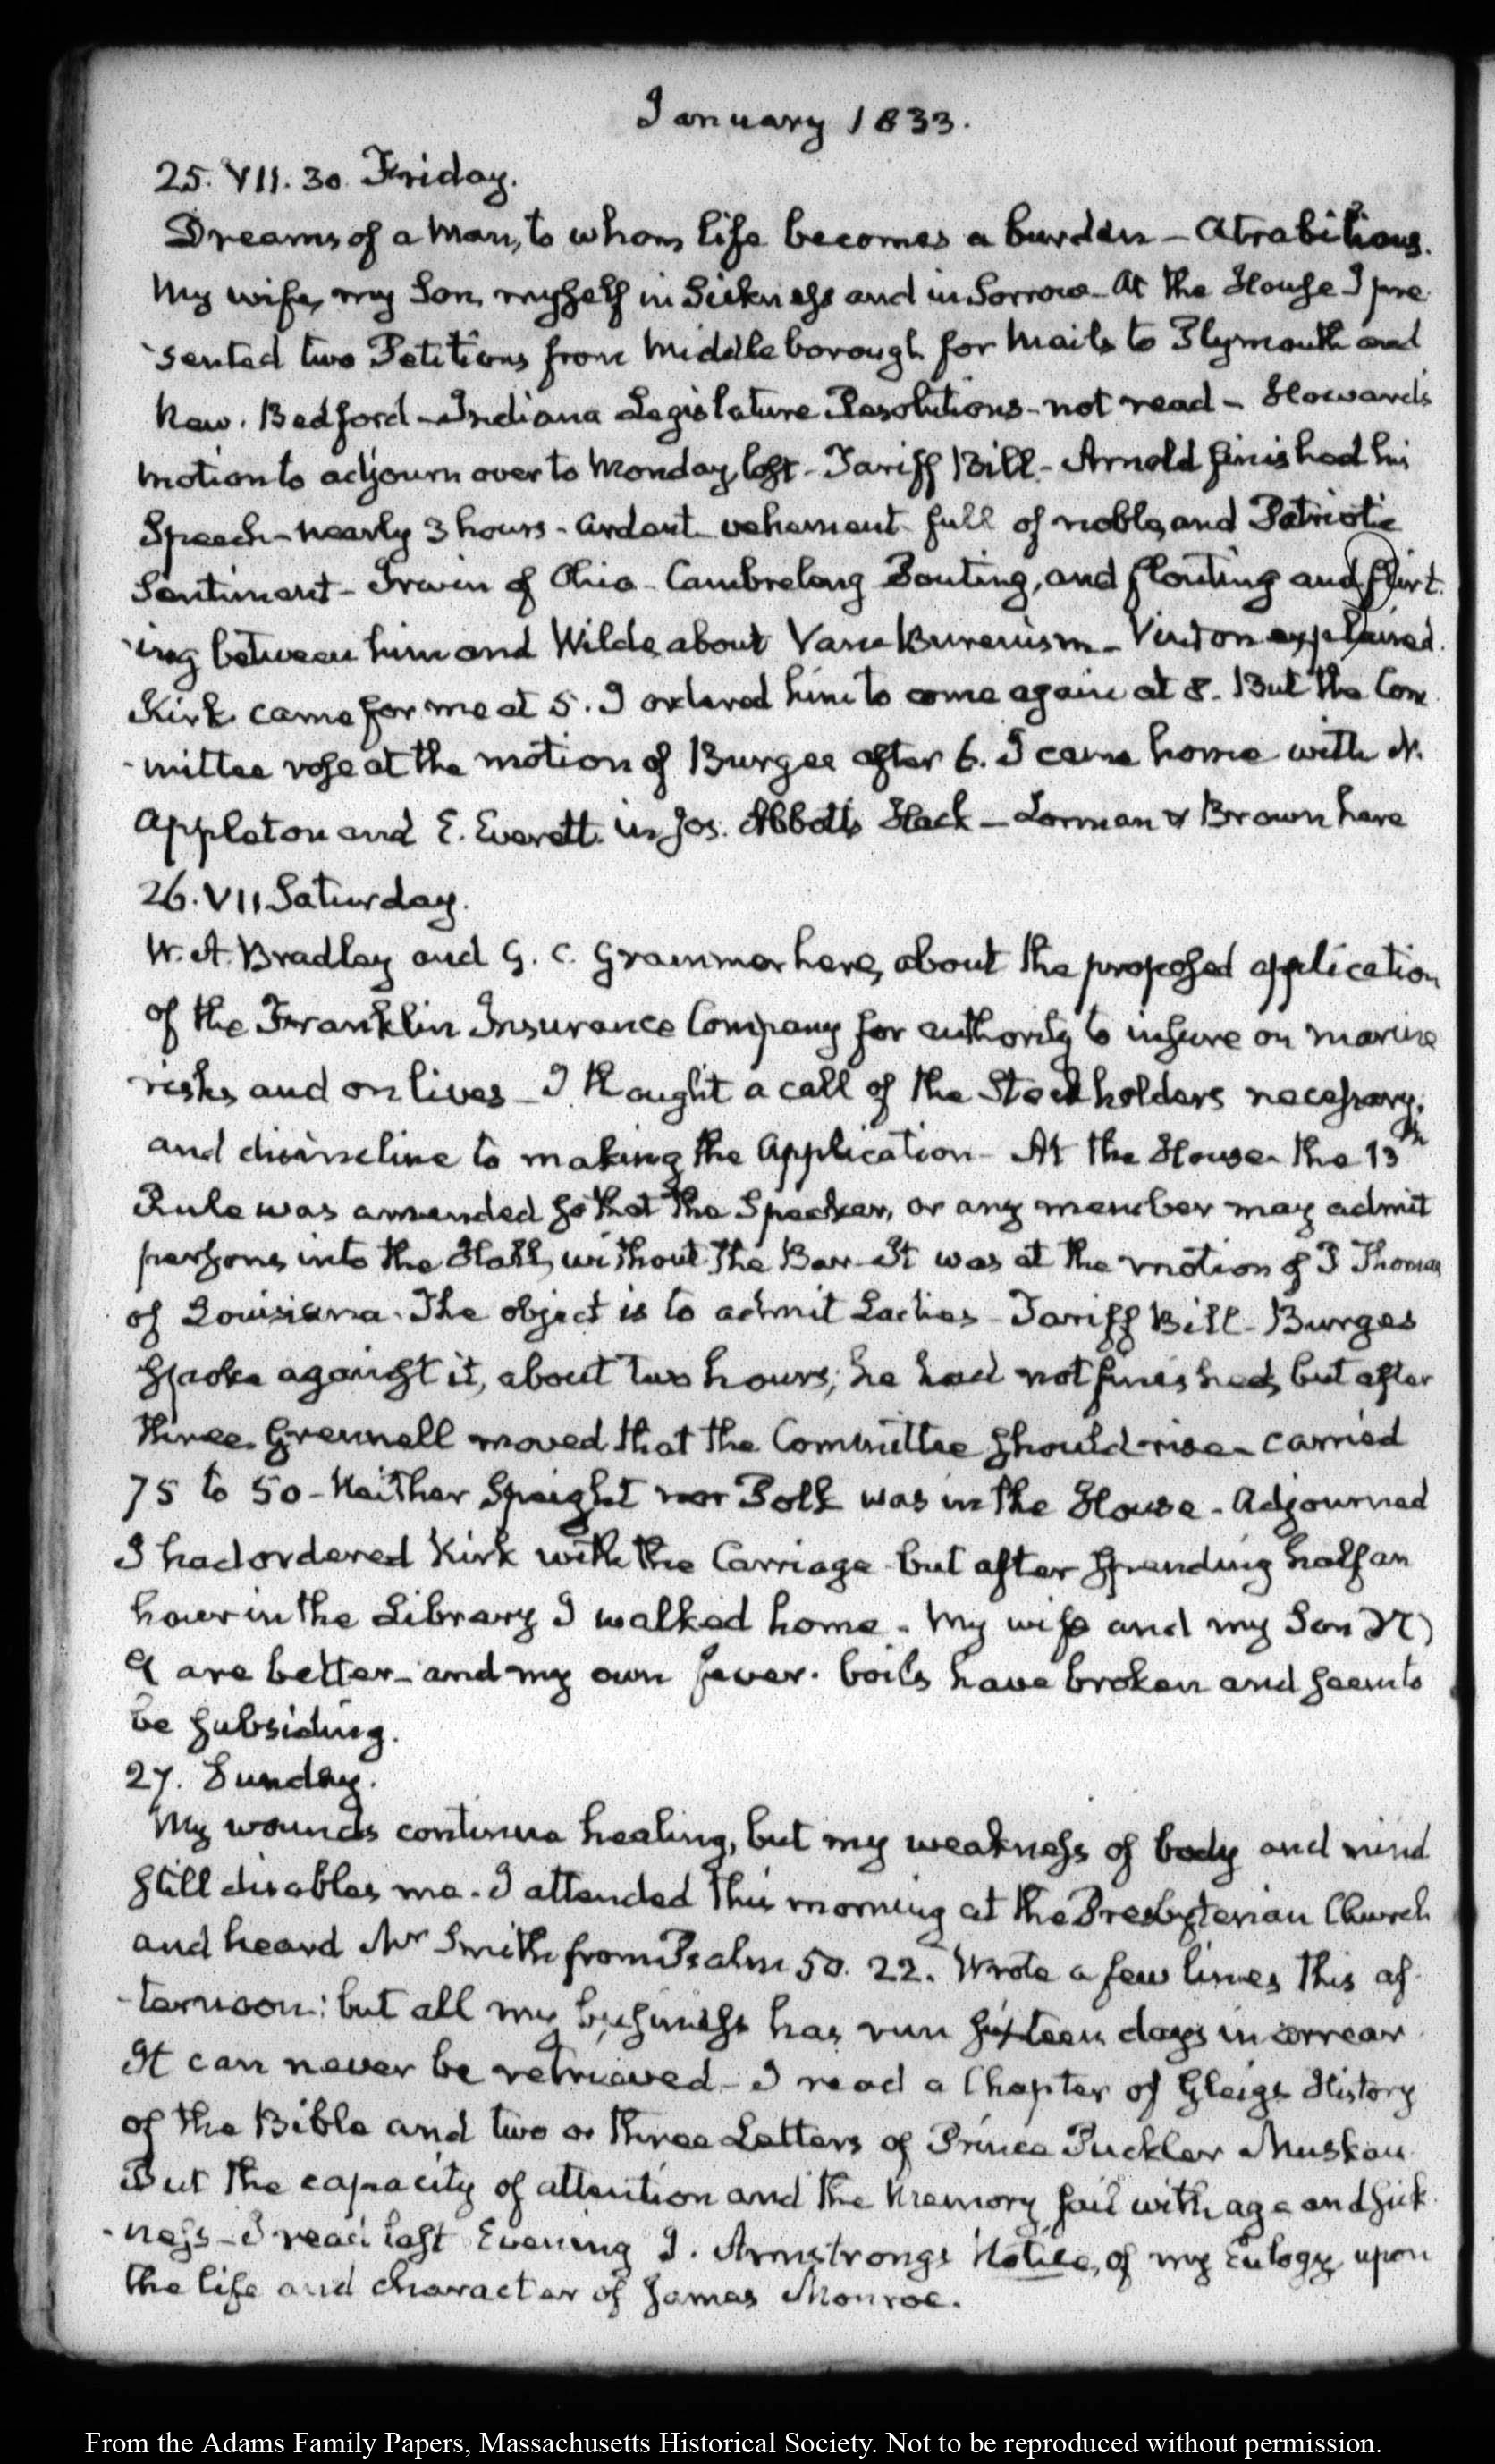 January 1833.
25. VII. 30. Friday.
Dreams of a Man, to whom life becomes a burden – Atrabilious.
My wife, my Son, myself in Sickness and in Sorrow – At the House I pre
-sented two Petitions from Middleborough for Mails to Plymouth and
New-Bedford – Indiana Legislature Resolutions – not read – Howard's
motion to adjourn over to Monday, lost – Tariff Bill – Arnold finished his
Speech – nearly 3 hours – ardent vehement full of noble, and Patriotic
Sentiment – Irwin of Ohio – Cambreleng Pouting, and flouting and flirt-
-ing between him and Wilde, about Van Burenism – Vinton explained.
Kirk came for me at 5. I ordered him to come again at 8. But the Com
-mittee rose at the motion of Burges after 6. I came home with N.
Appleton and E. Everett in Jos. Abbott's Hack – Lorman & Brown here
26. VII Saturday.
W. A. Bradley and G. C. Grammer here, about the proposed application
of the Franklin Insurance Company for authority to insure on marine
risks and on lives – I thought a call of the Stockholders necessary,
and disincline to making the Application – At the House the 13th
Rule was amended so that the Speaker, or any member may admit
persons into the Hall, without the Bar – It was at the motion of P Thomas
of Louisiana. The object is to admit Ladies – Tariff Bill – Burges
spoke against it, about two hours; he had not finished, but after
three Grennell moved that the Committee should rise – carried
75 to 50 – Neither Speight nor Polk was in the House – Adjourned
I had ordered Kirk with the Carriage but after spending half an
hour in the Library I walked home. My wife and my Son
are better – and my own fever-boils have broken and seem to
be subsiding.
27. Sunday.
My wounds continue healing, but my weakness of body and mind
still disables me. I attended this morning at the Presbyterian Church
and heard Mr Smith from Psalm 50. 22. Wrote a few lines this af-
-ternoon: but all my business has run sixteen days in arrear.
It can never be retrieved – I read a Chapter of Gleigs History
of the Bible and two or three Letters of Prince Puckler Muskau.
But the capacity of attention and the memory fail with age and sick-
-ness – I read last Evening J. Armstrongs Notice, of my Eulogy, upon
the life and character of James Monroe.
From the Adams Family Papers, Massachusetts Historical Society. Not to be reproduced without permission.